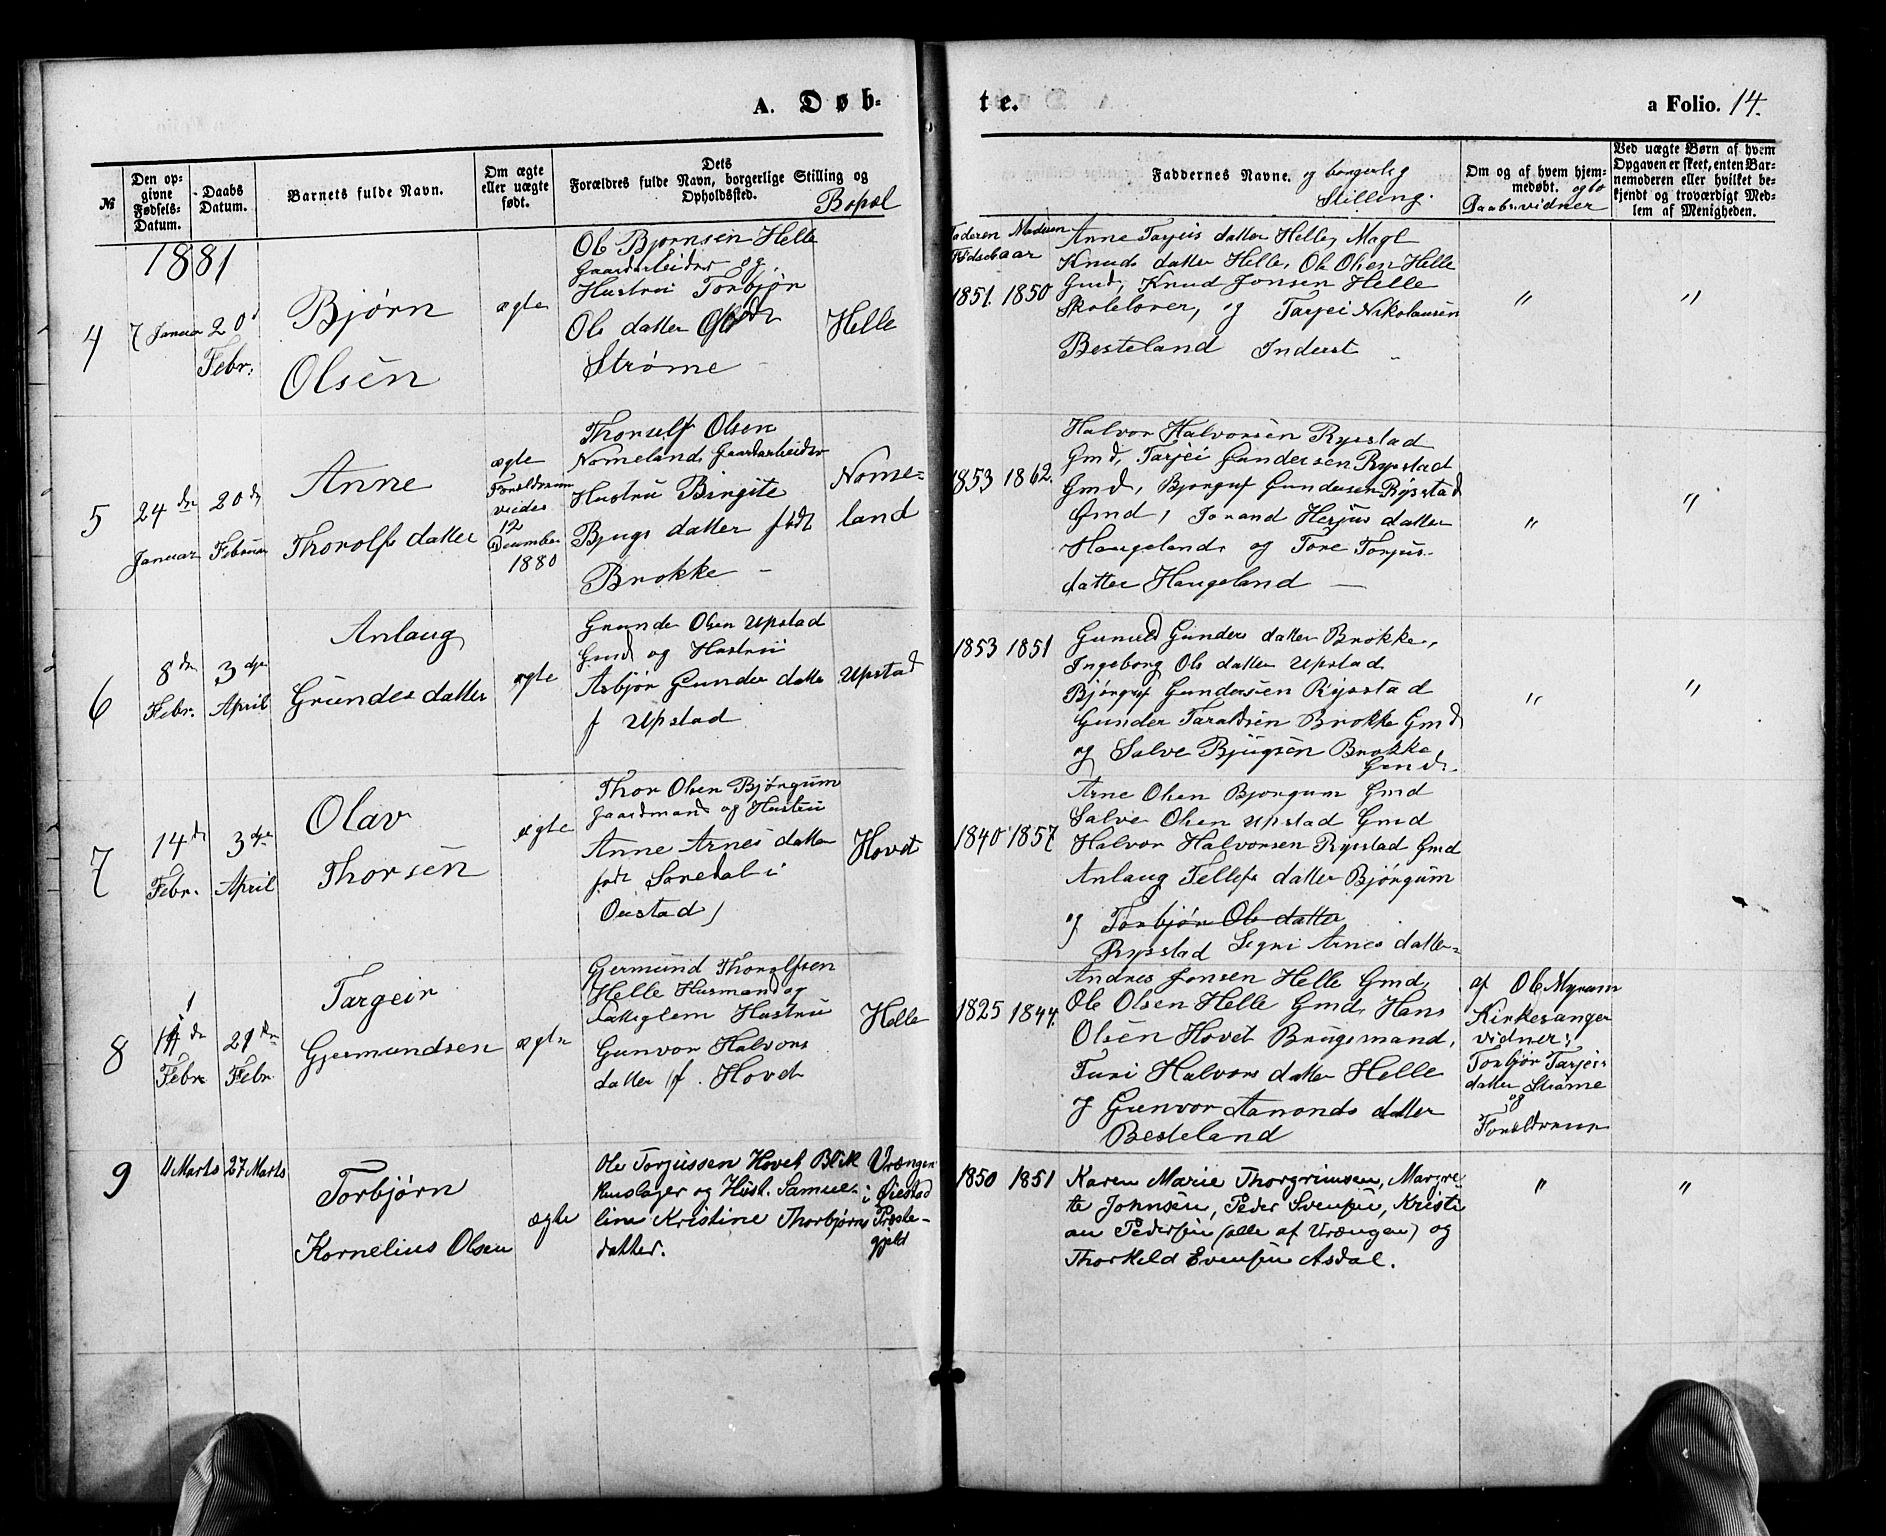 A. Døb-
te.
a Folio. 14.
№
Den op-
givne
Fødsels-
Datum.
Daabs
Datum.
Barnets fulde Navn.
Om ægte
eller uægte
født.
Dets
Forældres fulde Navn, borgerlige Stilling og
Opholdssted.
Bopæl
Faddernes Navne. og borgerlig
Stilling.
Om og af hvem hjem-
medøbt. og to
Daabsvidner
Ved uægte Børn af hvem
Opgaven er skeet, enten Bar-
nemoderen eller hvilket be-
kjendt og troværdigt Med-
lem af Menigheden.
Faderen Moderen
Fødselsaar
1881
4
7 Januar
20
Febr.
Bjørn
Olsen
ægte
Ole Bjørnsen Helle
Gaardarbeider og
Hustru Torbjør
Ols datter født
Strøme
Helle
1851. 1850
Anne Tarjeis datter Helle, Magl
Knuds datter Helle, Ole Olsen Helle
Gmd, Knud Jonsen Helle
Skolelærer, og Tarjei Nikolausen
Besteland Inderst
"
"
5
24 de
Januar
20 de
Februar
Anne
Thorolfs datter
ægte
Forældrene
viedes
12
December
1880
Thorulf Olsen
Nomeland, Gaardarbeider
Hustru Birgite
Bjugs datter født
Brokke
Nome-
land
1853 1862.
Halvor Halvorsen Rysstad
Gmd, Tarjei Gundersen Rysstad
Gmd, Bjørguf Gundersen Rysstad
Gmd, Jorand Herjus datter
Haugeland, og Tore Torjus-
datter Haugeland
"
"
6
8 de
Febr.
3 dje
April
Anlaug
Grundes datter
ægte
Grunde Olsen Upstad
Gmd og Hustru
Asbjør Gunder datter
f Upstad
Upstad
1853 1851
Gunuld Gunders datter Brokke,
Ingeborg Ols datter Upstad
Bjørguf Gundersen Rysstad
Gunder Taraldsen Brokke Gmd
og Salve Bjugsen Brokke
Gmd.
"
"
7
14 de
Febr.
3 dje
April
Olav
Thorsen
ægte
Thor Olsen Bjørgum
Gaardmand og Hustru
Anne Arnes datter
født Søredal i
Oustad)
Hovet
1840 1857
Arne Olsen Bjørgum Gmd
Salve Olsen Upstad Gmd
Halvor Halvorsen Rysstad Gmd
Anlaug Tellefs datter Bjørgum
og Torbjør Ols datter
Rysstad Signi Arnes datter
8
Febr
21 de
Febr
Targeir
Gjermundsen
ægte
Gjermund Thorolfsen
Helle Husmand og
Hustru
Gunvor Halvors
datter f. Hovet
Helle
1825 1844.
Andres Jonsen Helle Gmd,
Ole Olsen Helle Gmd, Hans
Olsen Hovet Brugsmand,
Turi Halvors datter Helle
og Gunvor Aanonds datter
Besteland
af Ole Myrum
Kirkesanger
vidner:
Torbjør Tarjeis-
datter Strøme
og
Forældrene
9
11 Marts
27 Marts
Torbjørn
Kornelius Olsen
ægte
Ole Torjussen Hovet Blik-
kenslager og Hust. Samue-
line Kristine Thorbjørns
datter.
Vrængen
i Øiestad
Præste-
gjeld
1850 1851
Karen Marie Thorgrimsen, Margre-
te Johnsen, Peder Svensen, Kristi
an Pedersen (alle af Vrængen) og
Thorkild Evensen Asdal.
"
"